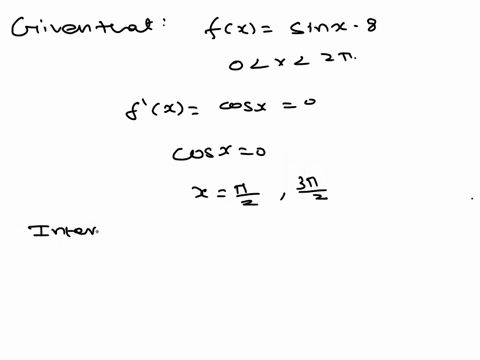 Given that: f(x) = sinx - 8
0 < x < 2π.
f'(x) = cosx = 0
cosx = 0
x = π/2, 3π/2
Inter